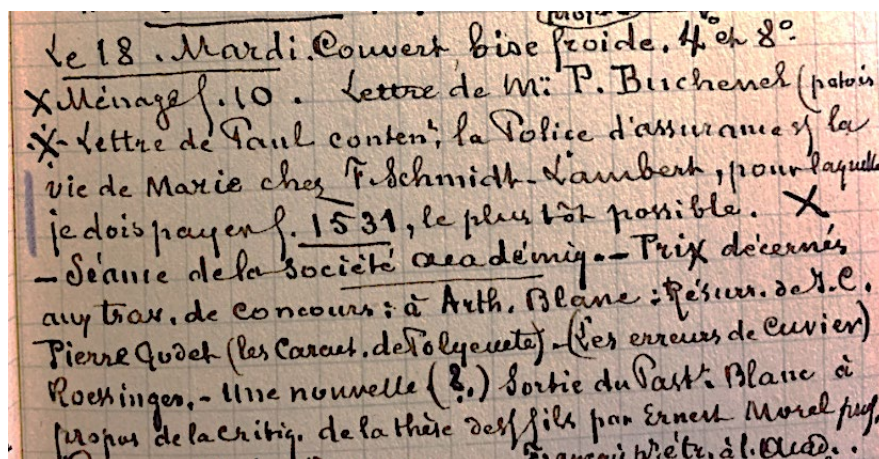 Le 18. Mardi. Couvert, bise froide. 4° et 8°.
X Ménage f. 10. Lettre de Mr. P. Buchenel (patois
X- Lettre de Paul conten^t. la Police d'assurance sf la
vie de Marie chez F. Schmidt-Lambert, pour laquelle
je dois payer f. 1531, le plus tôt possible. X
- Séance de la Société académiq. - Prix décernés
aux trav. de concours : à Arth. Blanc : Résurr. de J.C.
Pierre Godet (les Caract. de Polyeucte) - (Les erreurs de Cuvier)
Roessinger. - Une nouvelle (?.) Sortie du Past^r. Blanc à
propos de la critiq. de la thèse de sf fils par Ernest Morel prof.
à l. Acad.